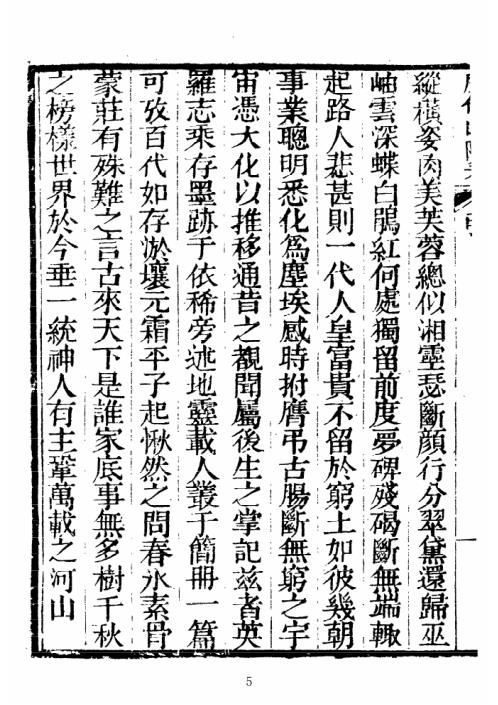 縱橫姿肉美芙蓉總似湘靈瑟斷顏行分翠黛還歸巫
岫雲深蝶白鵑紅何處獨留前度夢碑殘碣斷無端輙
起路人悲甚則一代人皇富貴不留於窮上如彼幾朝
事業聰明悉化為塵埃感時拊膺弔古腸斷無窮之宇
宙憑大化以推移通昔之覩聞屬後生之掌記茲者英
羅志乘存墨跡于依稀旁述地靈載人叢于簡冊一篇
可攷百代如存淤壤元霜平子起愀然之問春氷素骨
蒙莊有殊難之言古來天下是誰家底事無多樹千秋
之榜樣世界於今垂一統神人有主鞏萬載之河山
一
5